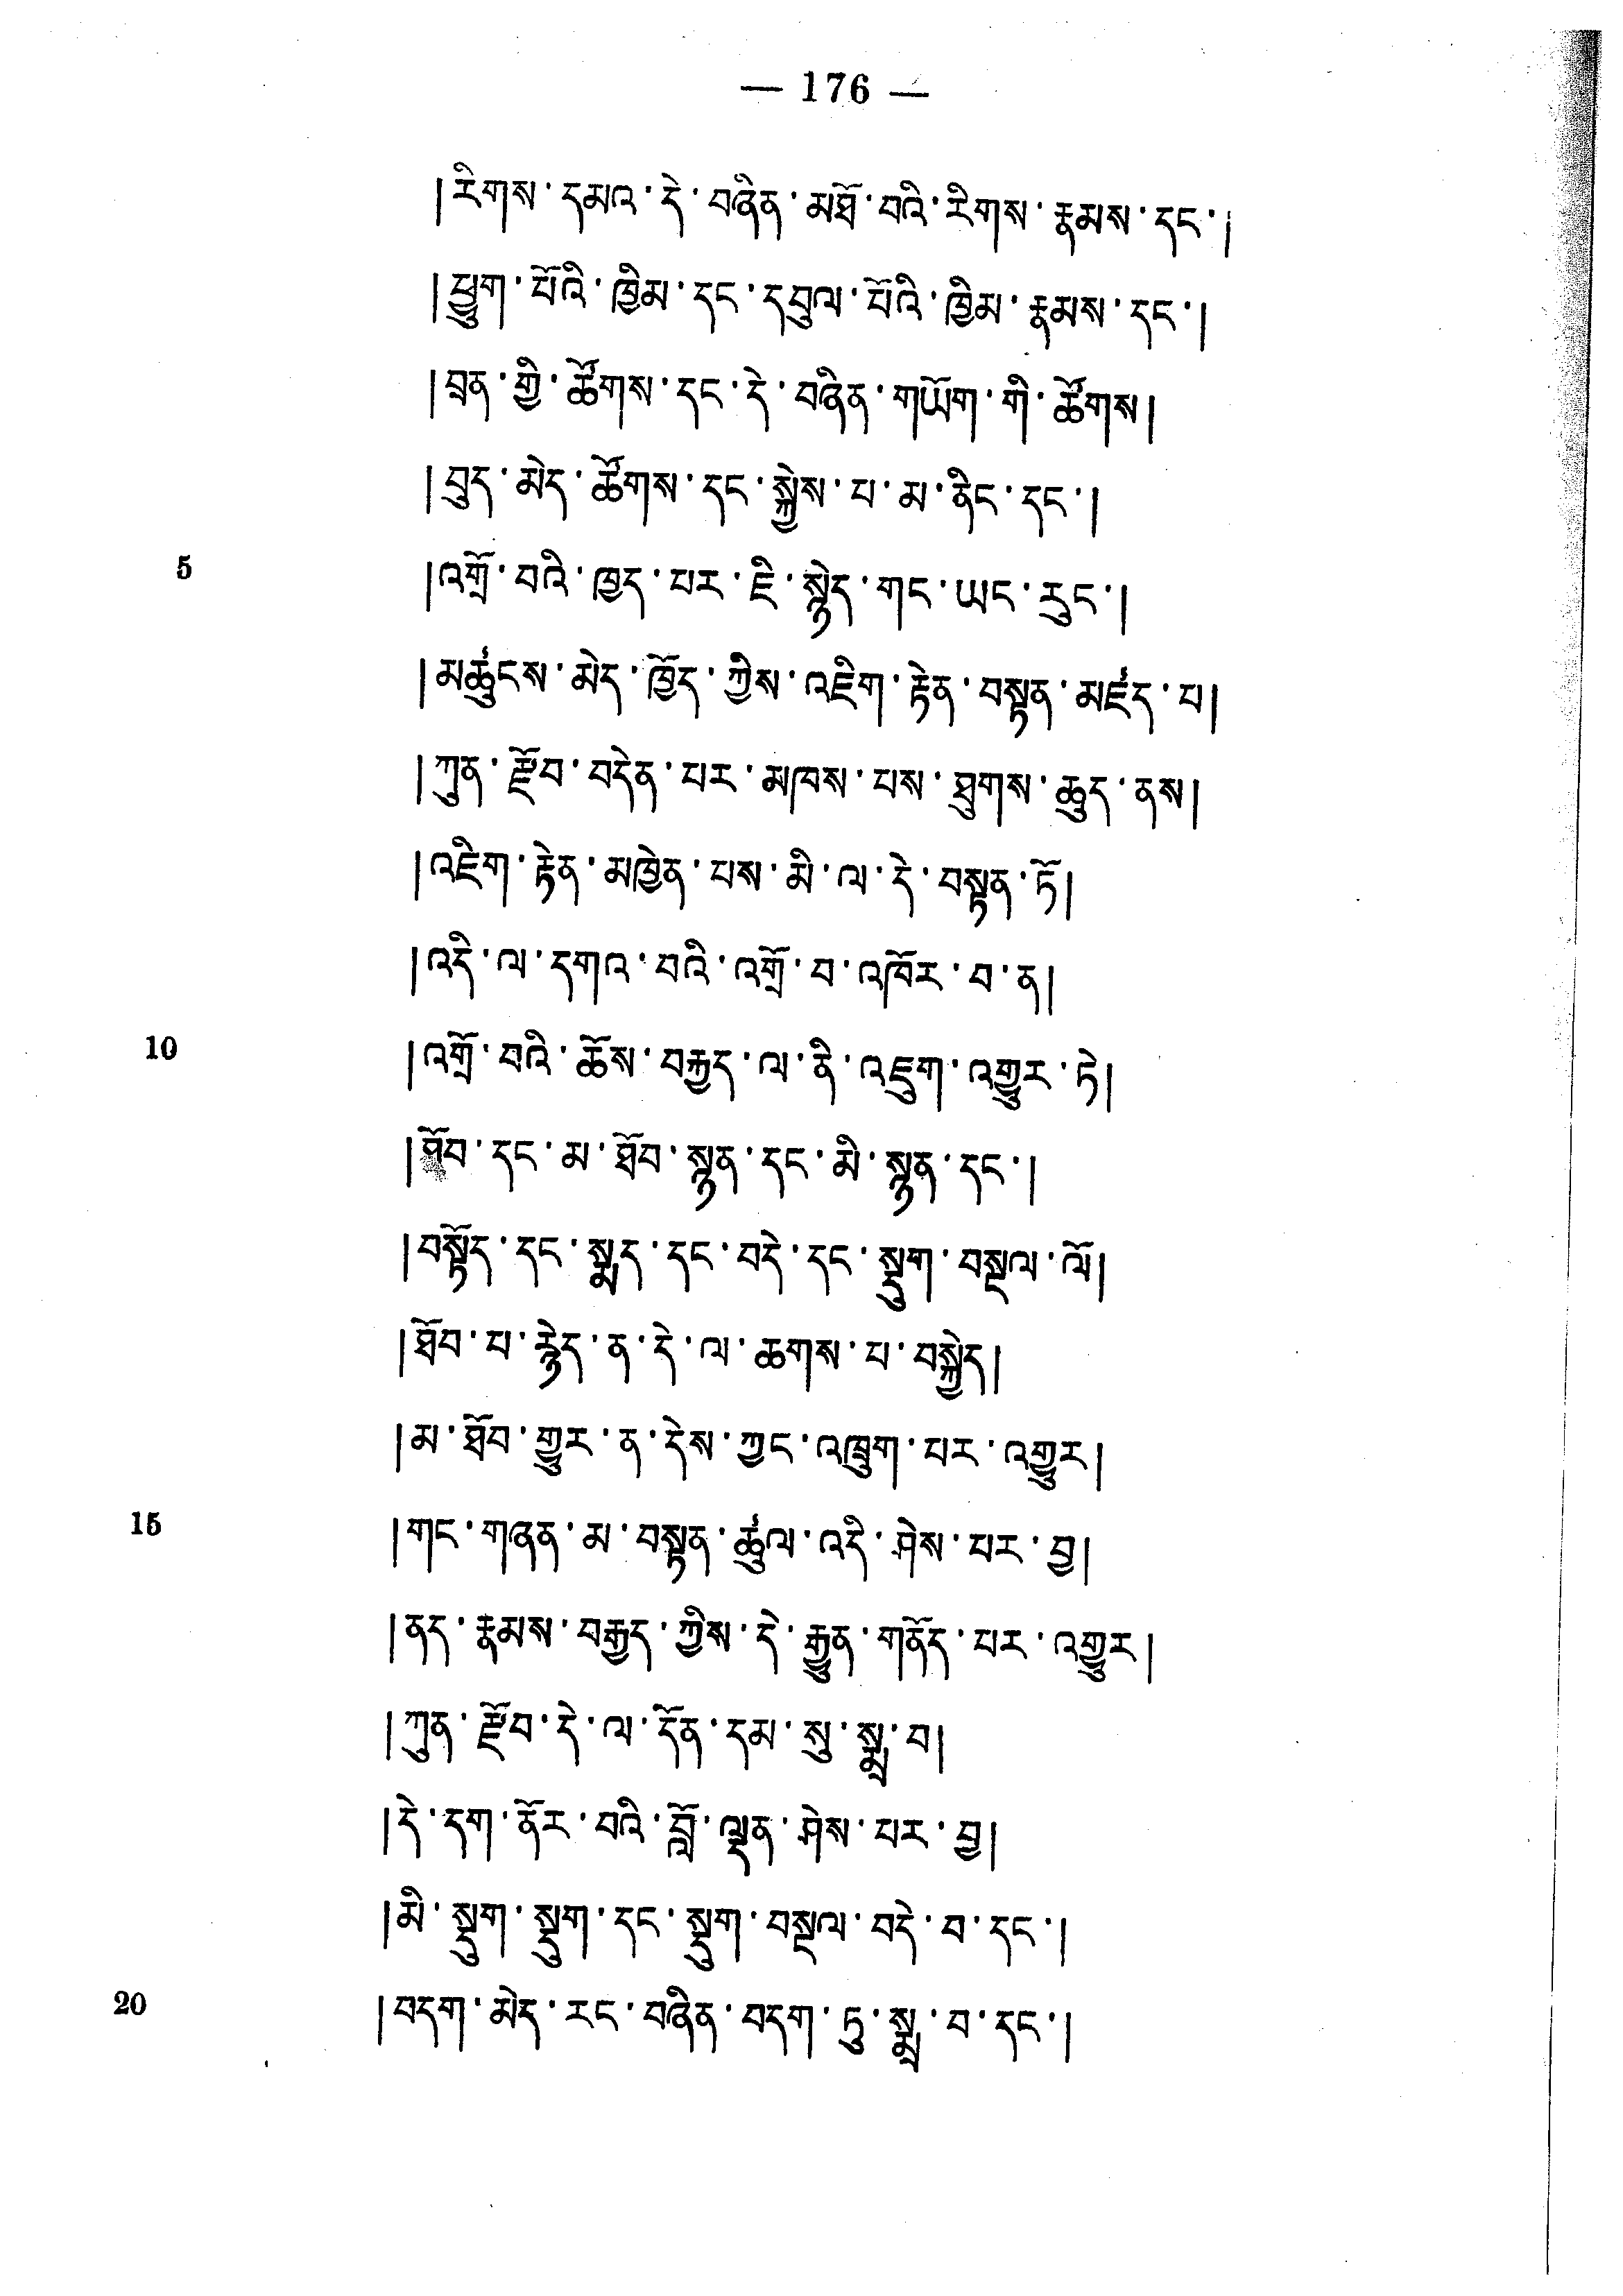 — 176 —
།རིགས་དམའ་དེ་བཞིན་མཐོ་བའི་རིགས་རྣམས་དང་།
།ཕྱུག་པོའི་ཁྱིམ་དང་དབུལ་པོའི་ཁྱིམ་རྣམས་དང་།
།བྲན་གྱི་ཚོགས་དང་དེ་བཞིན་གཡོག་གི་ཚོགས།
།བུད་མེད་ཚོགས་དང་སྐྱེས་པ་མ་ནིང་དང་།
5 །འགྲོ་བའི་ཁྱད་པར་ཇི་སྙེད་གང་ཡང་རུང་།
།མཚུངས་མེད་ཁྱོད་ཀྱིས་འཇིག་རྟེན་བསྟན་མཛད་པ།
།ཀུན་རྫོབ་བདེན་པར་མཁས་པས་ཐུགས་ཆུད་ནས།
།འཇིག་རྟེན་མཁྱེན་པས་མི་ལ་དེ་བསྟན་ཏོ།
།འདི་ལ་དགའ་བའི་འགྲོ་བ་འཁོར་བ་ན།
10 །འགྲོ་བའི་ཆོས་བརྒྱད་ལ་ནི་འཇུག་འགྱུར་ཏེ།
།ཐོབ་དང་མ་ཐོབ་སྙན་དང་མི་སྙན་དང་།
།བསྟོད་དང་སྨད་དང་བདེ་དང་སྡུག་བསྔལ་ལོ།
།ཐོབ་པ་རྙེད་ན་དེ་ལ་ཆགས་པ་བསྐྱེད།
།མ་ཐོབ་གྱུར་ན་དེས་ཀྱང་འཁྲུག་པར་འགྱུར།
15 །གང་གཞན་མ་བསྟན་ཚུལ་འདི་ཤེས་པར་བྱ།
།ནད་རྣམས་བརྒྱད་ཀྱིས་དེ་རྒྱུན་གནོད་པར་འགྱུར།
།ཀུན་རྫོབ་དེ་ལ་དོན་དམ་སུ་སྨྲ་བ།
།དེ་དག་ནོར་བའི་བློ་ལྡན་ཤེས་པར་བྱ།
།མི་སྡུག་སྡུག་དང་སྡུག་བསྔལ་བདེ་བ་དང་།
20 །བདག་མེད་རང་བཞིན་བདག་ཏུ་སྨྲ་བ་དང་།